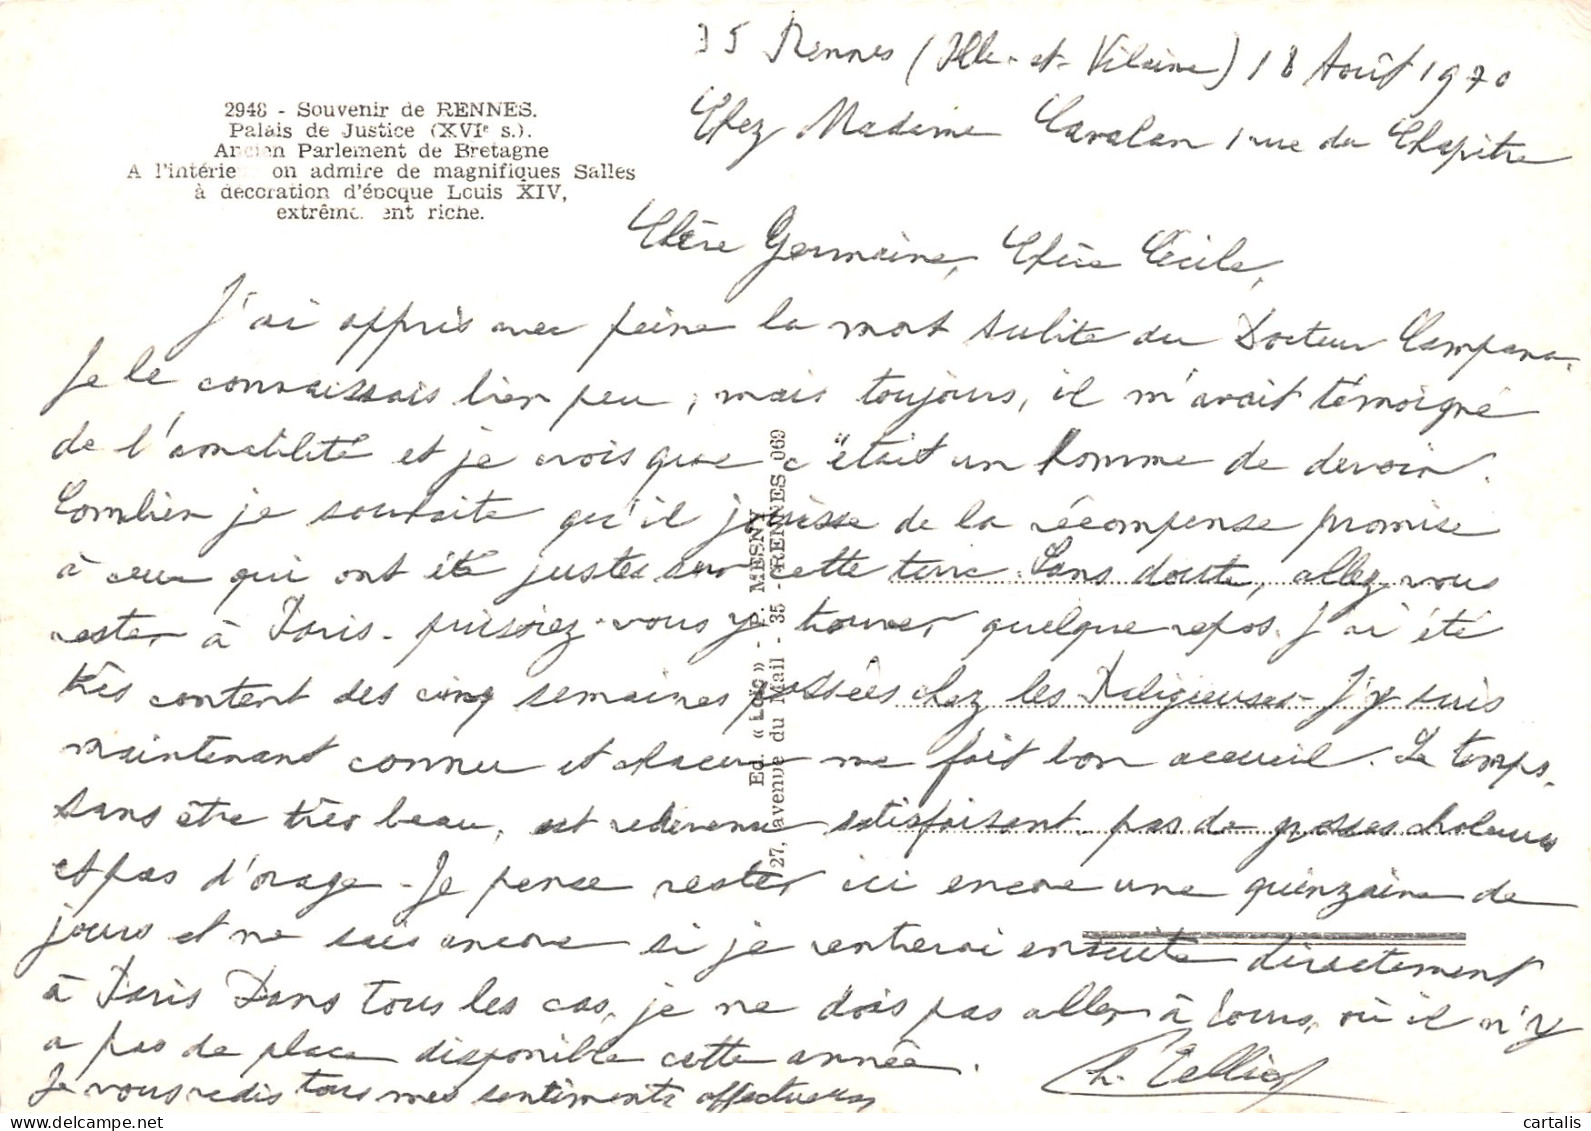 35 Rennes (Ille-et-Vilaine) 18 Août 1970
Chez Madame Cavalan 1 rue du Chapitre
2948 - Souvenir de RENNES.
Palais de Justice (XVIe s.).
Ancien Parlement de Bretagne
A l'intérie on admire de magnifiques Salles
à décoration d'époque Louis XIV,
extrêmement riche.
Chère Germaine, Chère Cécile,
J'ai appris avec peine la mort subite du Docteur Campana.
Je le connaissais bien peu, mais toujours, il m'avait témoigné
de l'amabilité et je crois que c'était un homme de devoir.
Combien je souhaite qu'il jouisse de la récompense promise
à ceux qui ont été justes sur cette terre. Sans doute, allez vous
rester à Paris - puissiez-vous y trouver quelque repos. J'ai été
très content des cinq semaines passées chez les Religieuses - J'y suis
maintenant connu et chacun me fait bon accueil. Le temps,
sans être très beau, est redevenu satisfaisant - pas de grosses chaleurs
et pas d'orage - Je pense rester ici encore une quinzaine de
jours et ne sais encore si je rentrerai ensuite directement
à Paris Dans tous les cas, je ne dois pas aller à Tours, où il n'y
a pas de place disponible cette année.
Je vous redis tous mes sentiments affectueux
Ch. Tellier
Ed. « Loïc » - P. MESNY
27, avenue du Mail - 35 - RENNES 069
cartalis